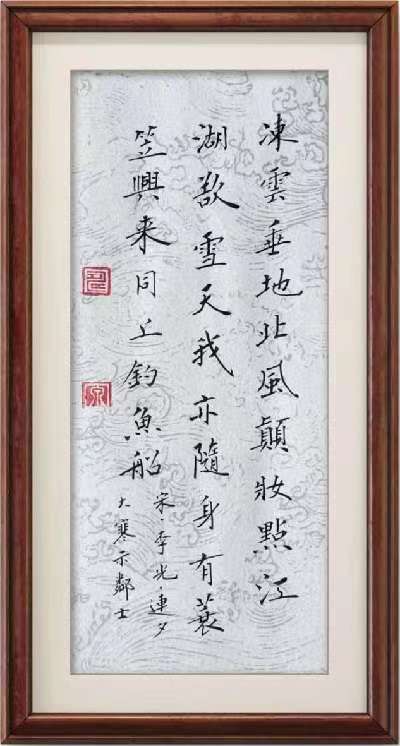 凍雲垂地北風顛妝點江
湖欲雪天我亦隨身有蓑
笠興来同上釣魚船
宋·李光·連夕
大寒示鄰士